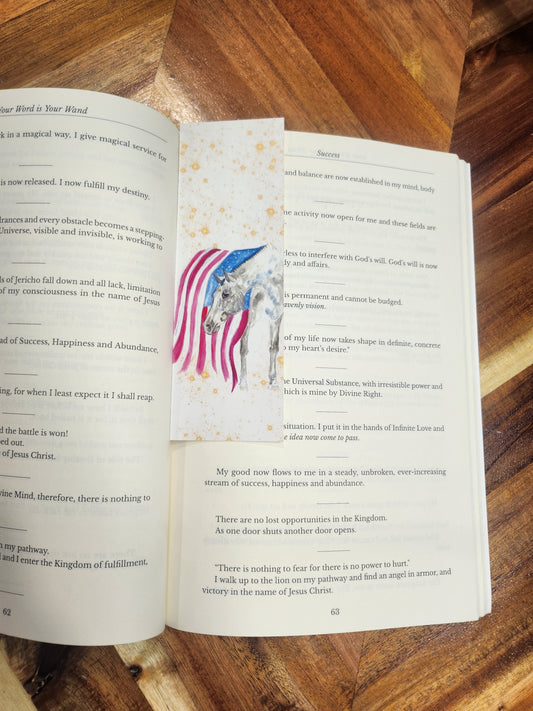 Your Word is Your Wand
in a magical way, I give magical service for
is now released. I now fulfill my destiny.
and every obstacle becomes a stepping-
Universe, visible and invisible, is working to
of Jericho fall down and all lack, limitation
of my consciousness in the name of Jesus
of Success, Happiness and Abundance,
for when I least expect it I shall reap.
and the battle is won!
out.
of Jesus Christ.
Mind, therefore, there is nothing to
on my pathway.
and I enter the Kingdom of fulfillment,
62
Success
and balance are now established in my mind, body
activity now open for me and these fields are
to interfere with God's will. God's will is
and affairs.
is permanent and cannot be budged.
vision.
of my life now takes shape in definite, concrete
my heart's desire."
Universal Substance, with irresistible power and
which is mine by Divine Right.
situation. I put it in the hands of Infinite Love and
idea now come to pass.
My good now flows to me in a steady, unbroken, ever-increasing
stream of success, happiness and abundance.
There are no lost opportunities in the Kingdom.
As one door shuts another door opens.
"There is nothing to fear for there is no power to hurt."
I walk up to the lion on my pathway and find an angel in armor, and
victory in the name of Jesus Christ.
63